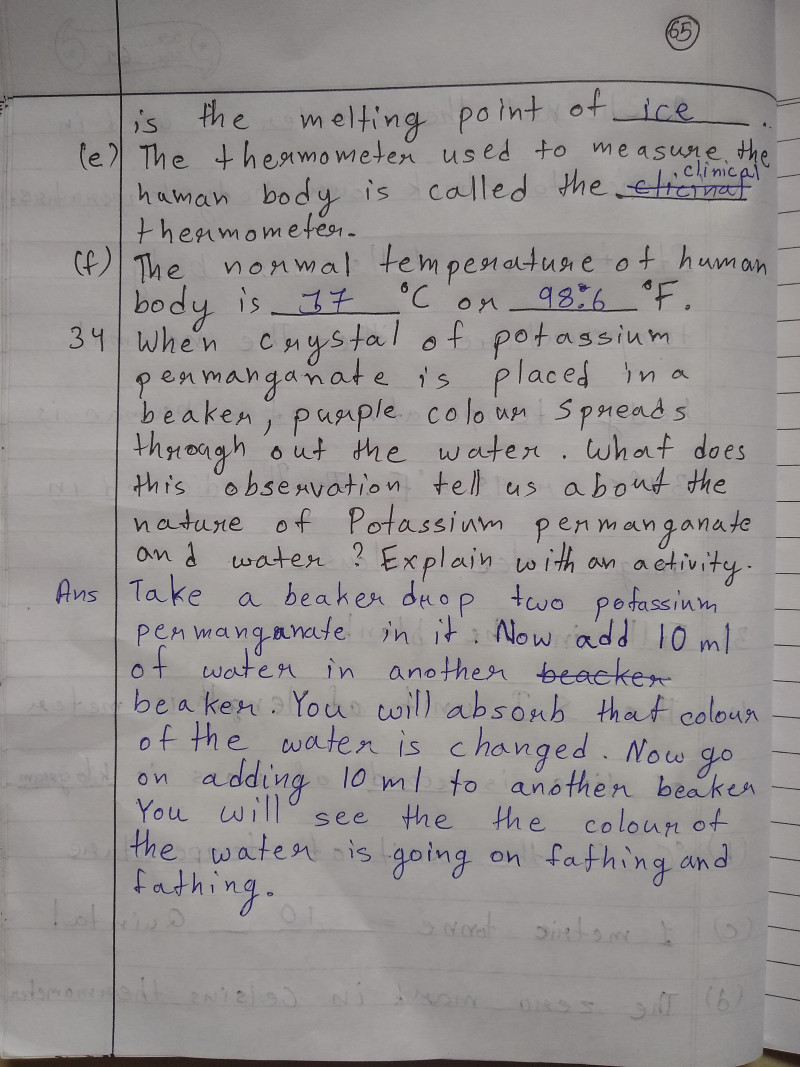 65
is the melting point of ice.
(e) The thermometer used to measure the
clinical
human body is called the clicinal
thermometer.
(f) The normal temperature of human
body is 37 °C or 98.6 °F.
34 When crystal of potassium
permanganate is placed in a
beaker, purple colour Spreads
through out the water. What does
this observation tell us about the
nature of Potassium permanganate
and water? Explain with an activity.
Ans Take a beaker drop two potassium
permanganate in it. Now add 10 ml
of water in another beacker
beaker. You will absorb that colour
of the water is changed. Now go
on adding 10 ml to another beaker
You will see the the colour of
the water is going on fathing and
fathing.